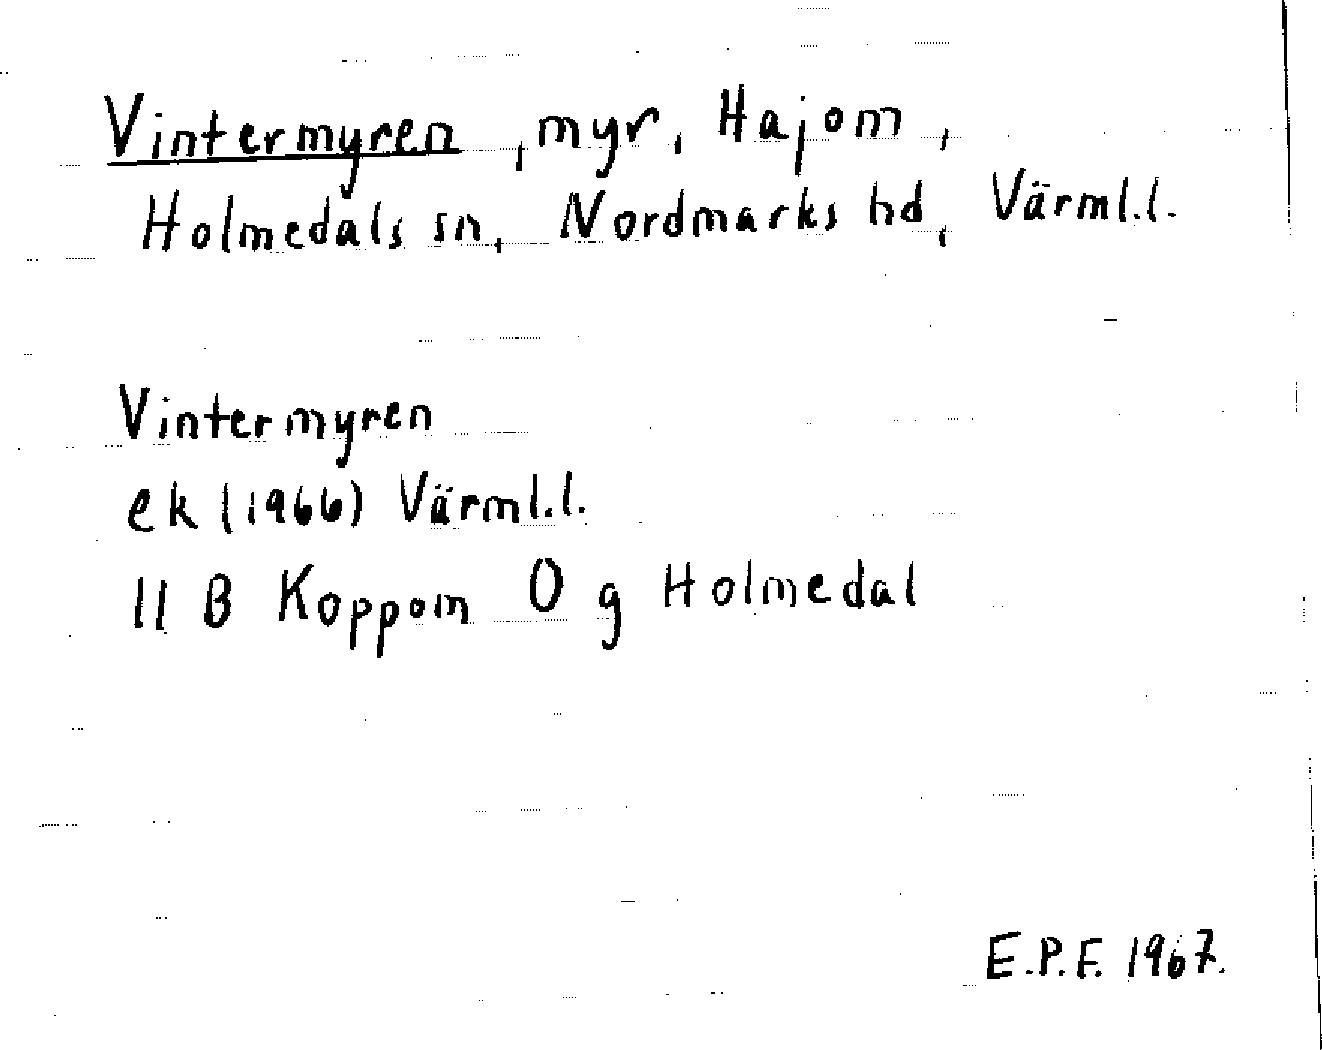 Vintermyren, myr, Hajom,
Holmedals sn, Nordmarks hd, Värml.l.
Vintermyren
ek (1966) Värml.l.
11 B Koppom 0 g Holmedal
E.P.F. 1967.